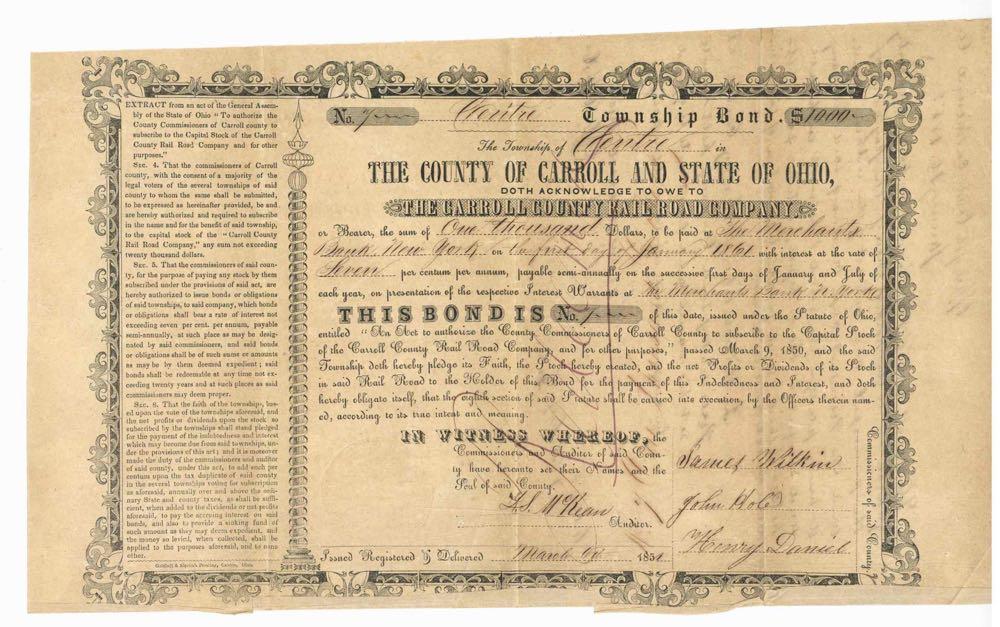 EXTRACT from an act of the General Assem-
bly of the State of Ohio "To authorize the
County Commissioners of Carroll county to
subscribe to the Capital Stock of the Carroll
County Rail Road Company and for other
purposes."
SEC. 4. That the commissioners of Carroll
county, with the consent of a majority of the
legal voters of the several townships of said
county to whom the same shall be submitted,
to be expressed as hereinafter provided, be and
are hereby authorized and required to subscribe
in the name and for the benefit of said township,
to the capital stock of the "Carroll County
Rail Road Company," any sum not exceeding
twenty thousand dollars.
SEC. 5. That the commissioners of said coun-
ty, for the purpose of paying any stock by them
subscribed under the provisions of said act, are
hereby authorized to issue bonds or obligations
of said townships, to said company, which bonds
or obligations shall bear a rate of interest not
exceeding seven per cent. per annum, payable
semi-annually, at such place as may be desig-
nated by said commissioners, and said bonds
or obligations shall be of such sums or amounts
as may be by them deemed expedient; said
bonds shall be redeemable at any time not ex-
ceeding twenty years and at such places as said
commissioners may deem proper.
SEC. 6. That the faith of the township, bas-
ed upon the vote of the townships aforesaid, and
the net profits or dividends upon the stock so
subscribed by the townships shall stand pledged
for the payment of the indebtedness and interest
which may become due from said townships, un-
der the provisions of this act; and it is moreover
made the duty of the commissioners and auditor
of said county, under this act, to add such per
centum upon the tax duplicate of said county
in the several townships voting for subscription
as aforesaid, annually over and above the ordi-
nary State and county taxes, as shall be suffi-
cient, when added to the dividends or net profits
aforesaid, to pay the accruing interest on said
bonds, and also to provide a sinking fund of
such amount as they may deem expedient, and
the money so levied, when collected, shall be
applied to the purposes aforesaid, and to none
other.
Printing, Canton, Ohio.
No. Centre Township Bond. $1000
The Township of Centre in
THE COUNTY OF CARROLL AND STATE OF OHIO,
DOTH ACKNOWLEDGE TO OWE TO
THE CARROLL COUNTY RAIL ROAD COMPANY,
or Bearer, the sum of One thousand Dollars, to be paid at The Merchants
Bank, New York on the first day of January 1861 with interest at the rate of
Seven per centum per annum, payable semi-annually on the successive first days of January and July of
each year, on presentation of the respective Interest Warrants at The Merchants Bank N. York
THIS BOND IS No. of this date, issued under the Statute of Ohio,
entitled "An Act to authorize the County Commissioners of Carroll County to subscribe to the Capital Stock
of the Carroll County Rail Road Company, and for other purposes," passed March 9, 1850, and the said
Township doth hereby pledge its Faith, the Stock hereby created, and the net Profits or Dividends of its Stock
in said Rail Road to the Holder of this Bond for the payment of this Indebtedness and Interest, and doth
hereby obligate itself, that the eighth section of said Statute shall be carried into execution, by the Officers therein nam-
ed, according to its true intent and meaning.
IN WITNESS WHEREOF, the
Commissioners and Auditor of said Coun-
ty have hereunto set their Names and the
Seal of said County.
McKean
Auditor.
Issued Registered & Delivered March 1851
James Wilkin
John
Henry Daniel
Commissioners of said County